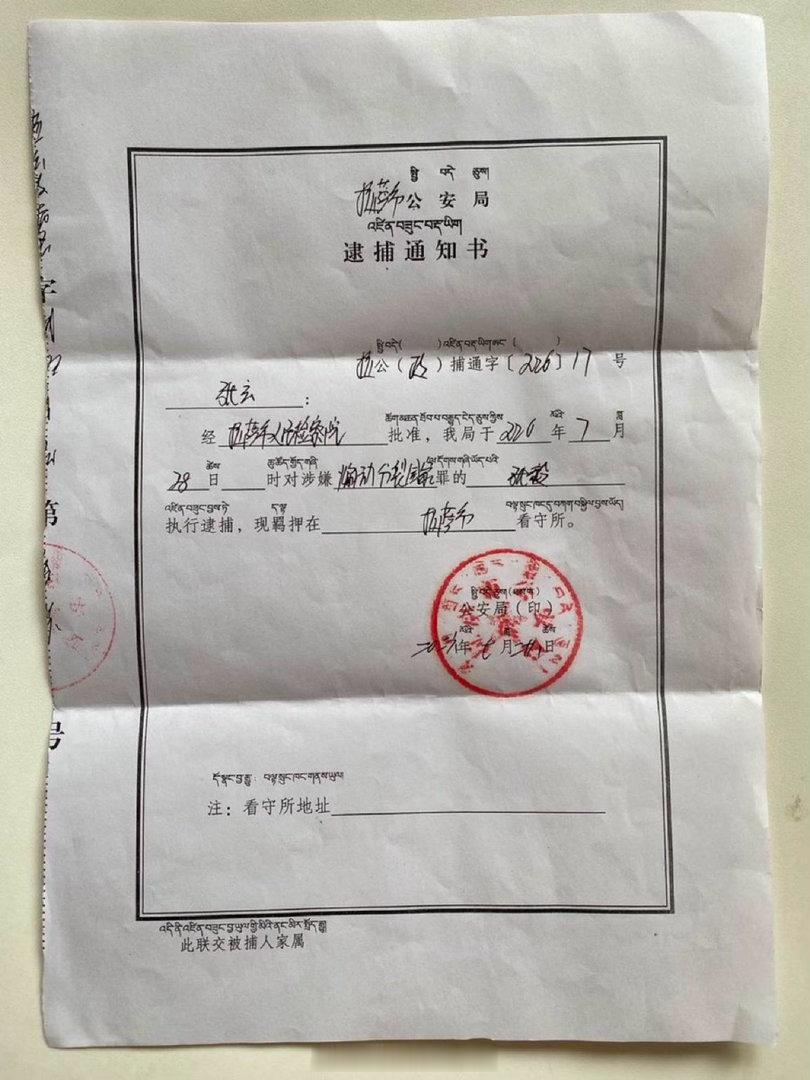 སྤྱི བདེ ཅུས།
拉萨市公安局
འཛིན་བཟུང་བརྡ་ཡིག
逮捕通知书
སྤྱི་བདེ་( )འཛིན་བརྡ་ཡིག་ཨང་( )
拉公( )捕通字〔2026〕17号
张云:
ཚོག་མཆན་ཐོབ་པ་བརྒྱུད་ངེད་ཅུས་ཀྱིས ལོའི ཟླ
经拉萨市人民检察院批准,我局于2026年7月
ཚེས ཆུ་ཚོད་ཀྱོད་གཞི ལ་དོགས་གཞི་ཡོད་པའི
28日 时对涉嫌煽动分裂国家罪的
འཛིན་བཟུང་བྱས་ཏེ ད་ལྟ བལྟ་སྲུང་ཁང་དུ་བཀག་བསྐྱིལ་བྱས་ཡོད།
执行逮捕,现羁押在拉萨市看守所。
སྤྱི་བདེ་ཅུས།(པར།)
公安局(印)
ལོའི ཟླ ཚེས
年 月 日
དོ་སྣང་བྱ་རྒྱུ: བལྟ་སྲུང་ཁང་གནས་ཡུལ།
注:看守所地址
འདི་ནི་འཛིན་བཟུང་བྱ་ཡུལ་གྱི་མིའི་ནང་མིར་སྤྲོད་རྒྱུ།
此联交被捕人家属
字
第
号